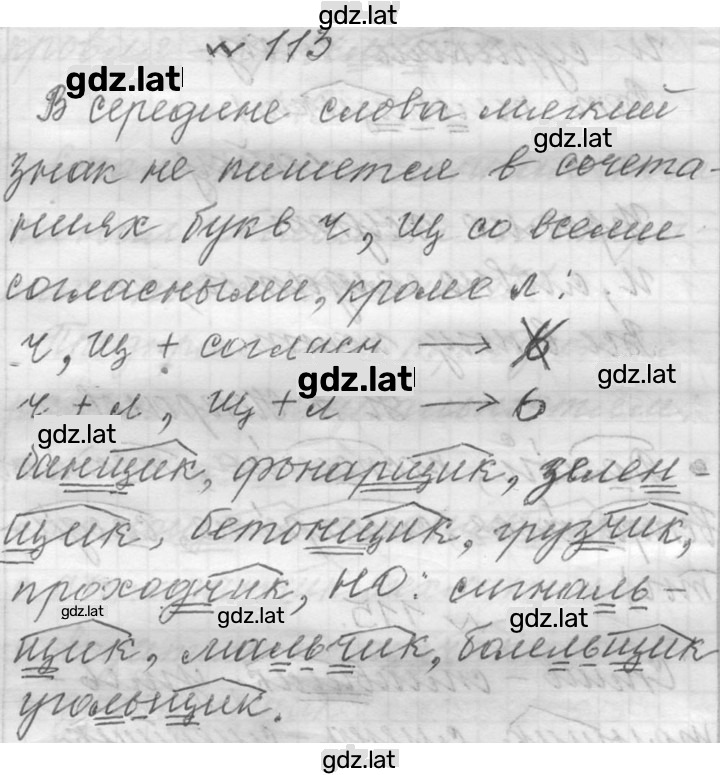 gdz.lat
№ 113
gdz.lat
В середине слова мягкий
gdz.lat
знак не пишется в сочета-
ниях букв ч, щ со всеми
согласными, кроме л:
ч, щ + согласн → ь
gdz.lat
gdz.lat
ч + л, щ + л → ь
gdz.lat
банщик, фонарщик, зелен-
щик, бетонщик, грузчик,
проходчик, НО: сигналь-
gdz.lat
gdz.lat
gdz.lat
щик, мальчик, болельщик
угольщик.
gdz.lat